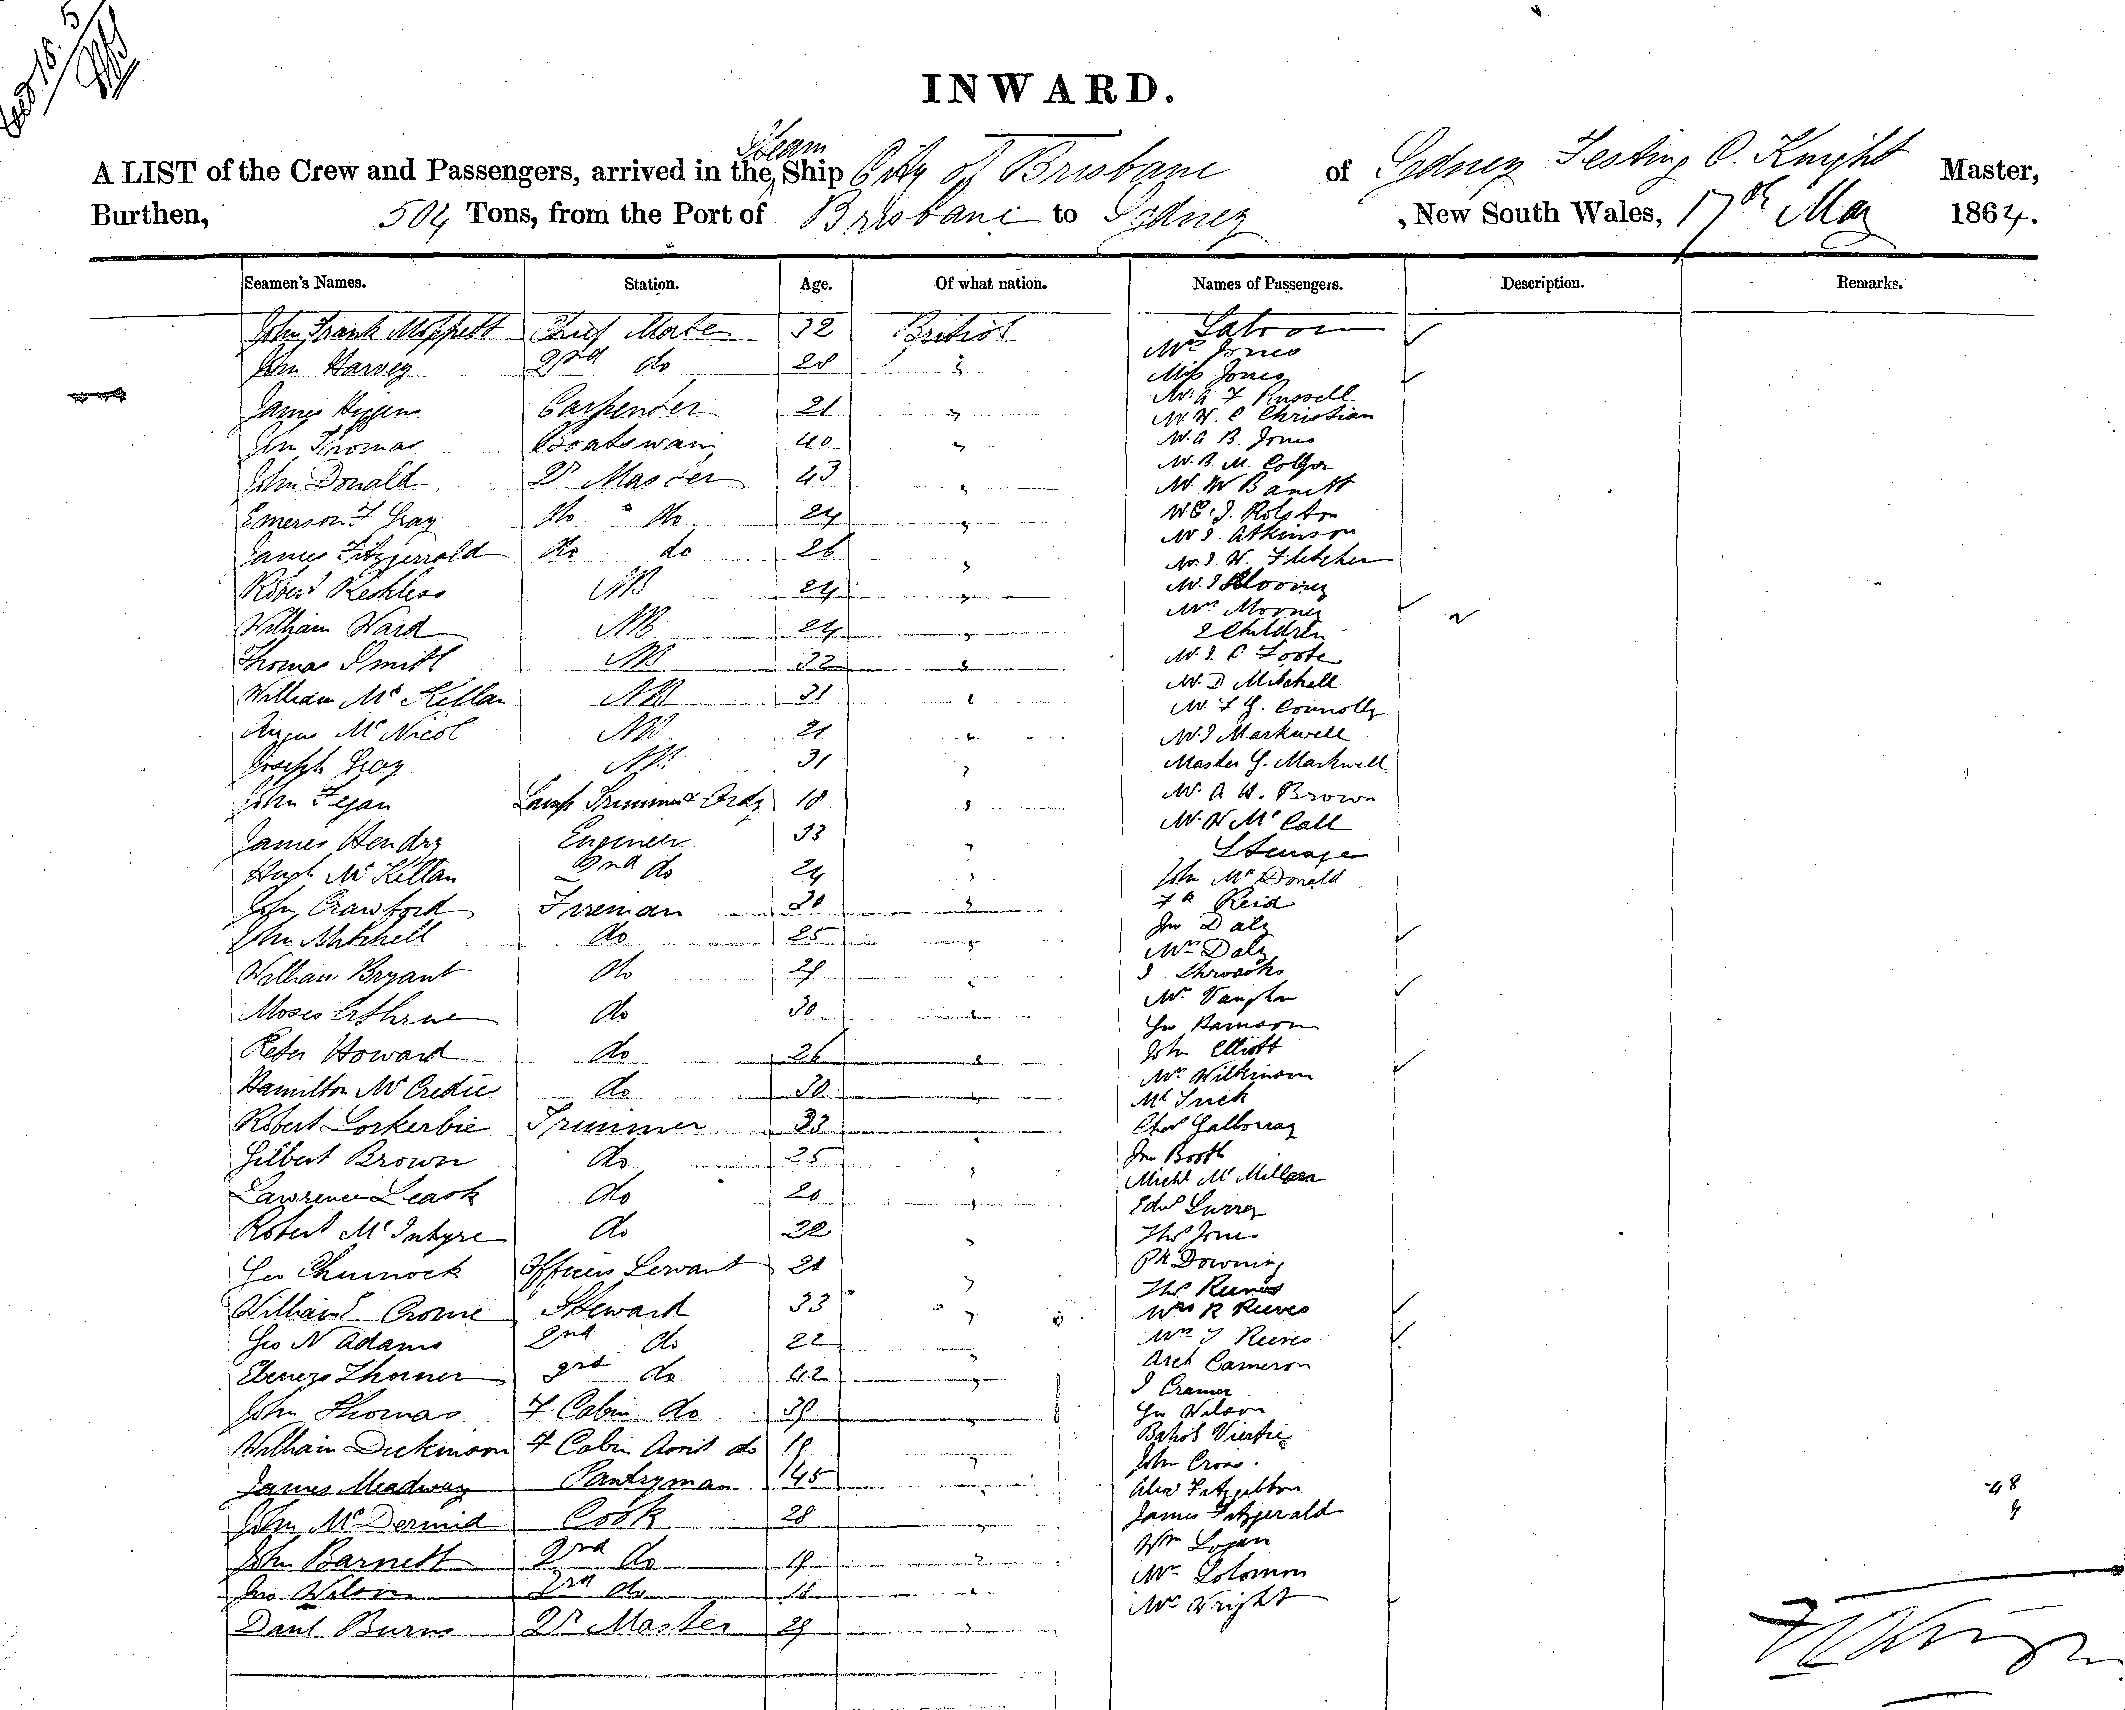 INWARD.
Steam
A LIST of the Crew and Passengers, arrived in the Ship City of Brisbane of Sydney Testing C. Knight Master,
Burthen, 504 Tons, from the Port of Brisbane to Sydney , New South Wales, 17th May 1864.
Seamen's Names. Station. Age. Of what nation. Names of Passengers. Description. Remarks.
John Frank Moppett Chief Mate 32 British
John Harvey 2nd do 28 "
James Higgens Carpenter 21 "
Jn Thomas Boatswain 40 "
John Donald Qr Master 43 "
Emerson F Gray do " do 24 "
James Fitzgerrald do do 26 "
Robert Reckless AB 24 "
William Ward AB 24 "
Thomas Smith AB 32 "
William McKellan AB 31 "
Angus McNicol AB 21 "
Joseph Gray AB 31 "
John Fegan Lamp Trimmer & Ordy 18 "
James Hendry Engineer 33 "
Hugh McKellan 2nd do 24 "
John Crawford Fireman 30 "
John Mitchell do 25 "
William Bryant do 29 "
Moses do 30 "
Peter Howard do 26 "
Hamilton McCredie do 30 "
Robert Lockerbie Trimmer 23 "
Gilbert Brown do 25 "
Lawrence Leask do 20 "
Robert McIntyre do 22 "
Geo Churnock Officers Servant 21 "
William Crome Steward 33 "
Geo N Adams 2nd do 22 "
Ebenezer Thorner 3rd do 42 "
John Thomas F Cabin do 39 "
William Dickinson F Cabin Asst do 19 "
James Meadway Pantryman 45 "
John McDermid Cook 28 "
John Barnett 2nd do 19 "
Jno Wilson 3rd do 18 "
Danl Burns Qr Master 29 "
Saloon
Mrs Jones
Miss Jones
Mr A F Russell
Mr W. C Christian
Mr A B. Jones
Mr B M.
Mr W Barrett
J. Rolston
Mr J. Atkinson
Mr J. W. Fletcher
Mr J Mooney
Mrs Mooney
2 Children
Mr J. C Foote
Mr D Mitchell
Mr T G. Connolly
Mr J Markwell
Master G. Markwell
Mr A H. Brown
Mr W McCall
Steerage
John McDonald
Reid
Jno Daly
Mrs Daly
Mrs Vaughn
Geo Harrison
John Elliott
Mrs Wilkinson
Chas Galloway
Jno Booth
Michl McMillan
Edwd Surrey
Thos Jones
Pk Downing
Thos Reeves
Mrs R Reeves
Mrs T Reeves
Arch Cameron
J Cramer
Geo Wilson
John Cross
Alex Fitzgibbon
James Fitzgerald
Wm Logan
Mr Solomon
Mrs Wright
48
9